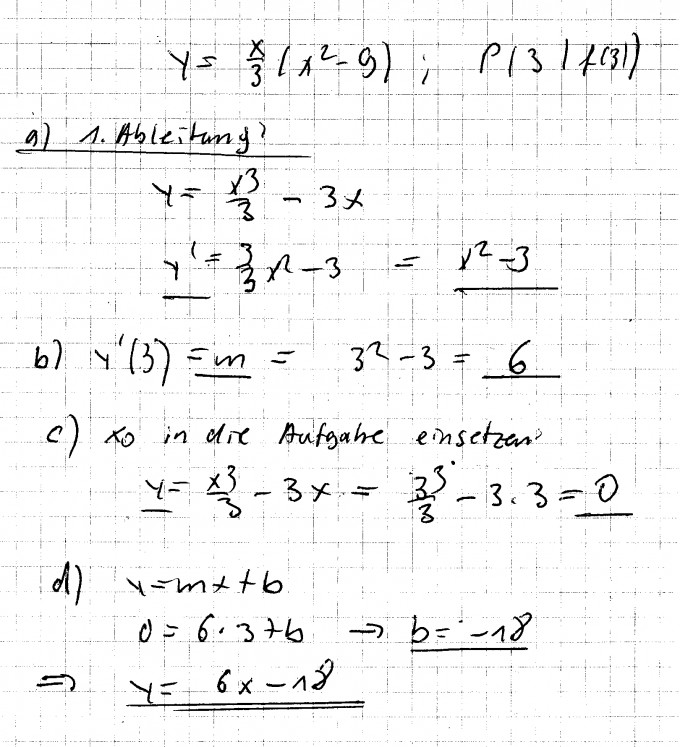 y = x/3 (x² - 9) ; P(3 | f(3))
a) 1. Ableitung?
y = x³/3 - 3x
y' = 3/3 x² - 3 = x² - 3
b) y'(3) = m = 3² - 3 = 6
c) x₀ in die Aufgabe einsetzen:
y = x³/3 - 3x = 3³/3 - 3·3 = 0
d) y = mx + b
0 = 6·3 + b → b = -18
⇒ y = 6x - 18